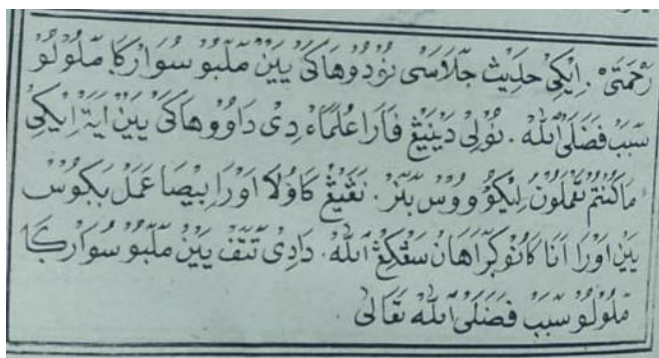 رَحْمَتَىْ. اِيْكِىْ حَدِيْث جَلَاسَىْ نُوْدُوْهَاكَىْ يَيْنْ مَلْبُوْ سُوَارْكَا مَلُوْلُوْ
سَبَبْ فَضَلَىْ اَللّٰه. نُوْلِىْ دَيْنَيْڠْ فَارَا عُلَمَاءْ دِىْ دَاوُوْهَاكَىْ يَيْنْ اٰيَةْ اِيْكِىْ
مَاكُنْتُمْ تَعْمَلُوْن لِيْكُوْ وُوْس بَنَرْ. نَڠَيْڠْ كَاوُلَا اَوْرَا بِيْصَا عَمَلْ بَكُوْس
يَيْنْ اَوْرَا اَنَا كَانُوْكْرَاهَانْ سَڠْكِڠْ اَللّٰه. دَادِىْ تَتَفْ يَيْنْ مَلْبُوْ سُوَارْكَا
مَلُوْلُوْ سَبَبْ فَضَلَىْ اَللّٰه تَعَالٰى